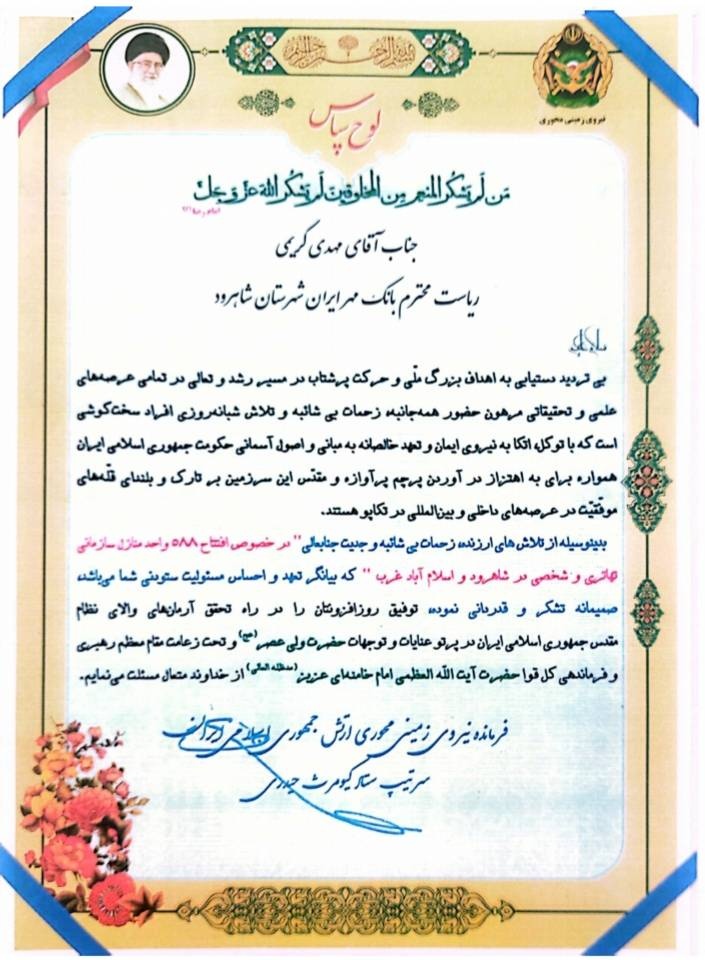 بسم الله الرحمن الرحیم
نیروی زمینی محوری
لوح سپاس
مَن لَم یَشکُر المُنعِمَ مِنَ المَخلوقینَ لَم یَشکُر اللهَ عَزَّ وَ جَلَّ
جناب آقای مهدی کریمی
ریاست محترم بانک مهر ایران شهرستان شاهرود
سلام علیکم
بی تردید دستیابی به اهداف بزرگ ملّی و حرکت پرشتاب در مسیر رشد و تعالی در تمامی عرصه‌های
علمی و تحقیقاتی مرهون حضور همه‌جانبه، زحمات بی شائبه و تلاش شبانه‌روزی افراد سخت‌کوشی
است که با توکل، اتکا به نیروی ایمان و تعهد خالصانه به مبانی و اصول آسمانی حکومت جمهوری اسلامی ایران
همواره برای به اهتزاز در آوردن پرچم پرآوازه و مقدّس این سرزمین بر تارک و بلندای قلّه‌های
موفقیّت در عرصه‌های داخلی و بین‌المللی در تکاپو هستند.
بدینوسیله از تلاش های ارزنده، زحمات بی شائبه و جدیت جنابعالی" در خصوص افتتاح ۵۸۸ واحد منازل سازمانی
جائری و شخصی در شاهرود و اسلام آباد غرب " که بیانگر تعهد و احساس مسئولیت ستودنی شما می‌باشد،
صمیمانه تشکر و قدردانی نموده، توفیق روزافزونتان را در راه تحقق آرمان‌های والای نظام
مقدس جمهوری اسلامی ایران در پرتو عنایات و توجهات حضرت ولی عصر (عج) و تحت زعامت مقام معظم رهبری
و فرماندهی کل قوا حضرت آیت الله العظمی امام خامنه‌ای عزیز (مدظله العالی) از خداوند متعال مسئلت می‌نمایم.
فرمانده نیروی زمینی محوری ارتش جمهوری اسلامی ایران
سرتیپ ستاد کیومرث حیدری